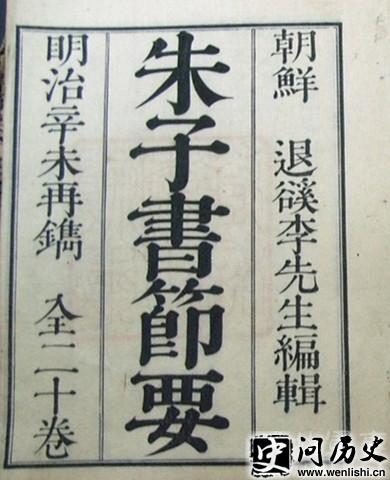 朝鮮 退谿李先生編輯
朱子書節要
明治辛未再鐫 全二十卷
史问历史
www.wenlishi.cn